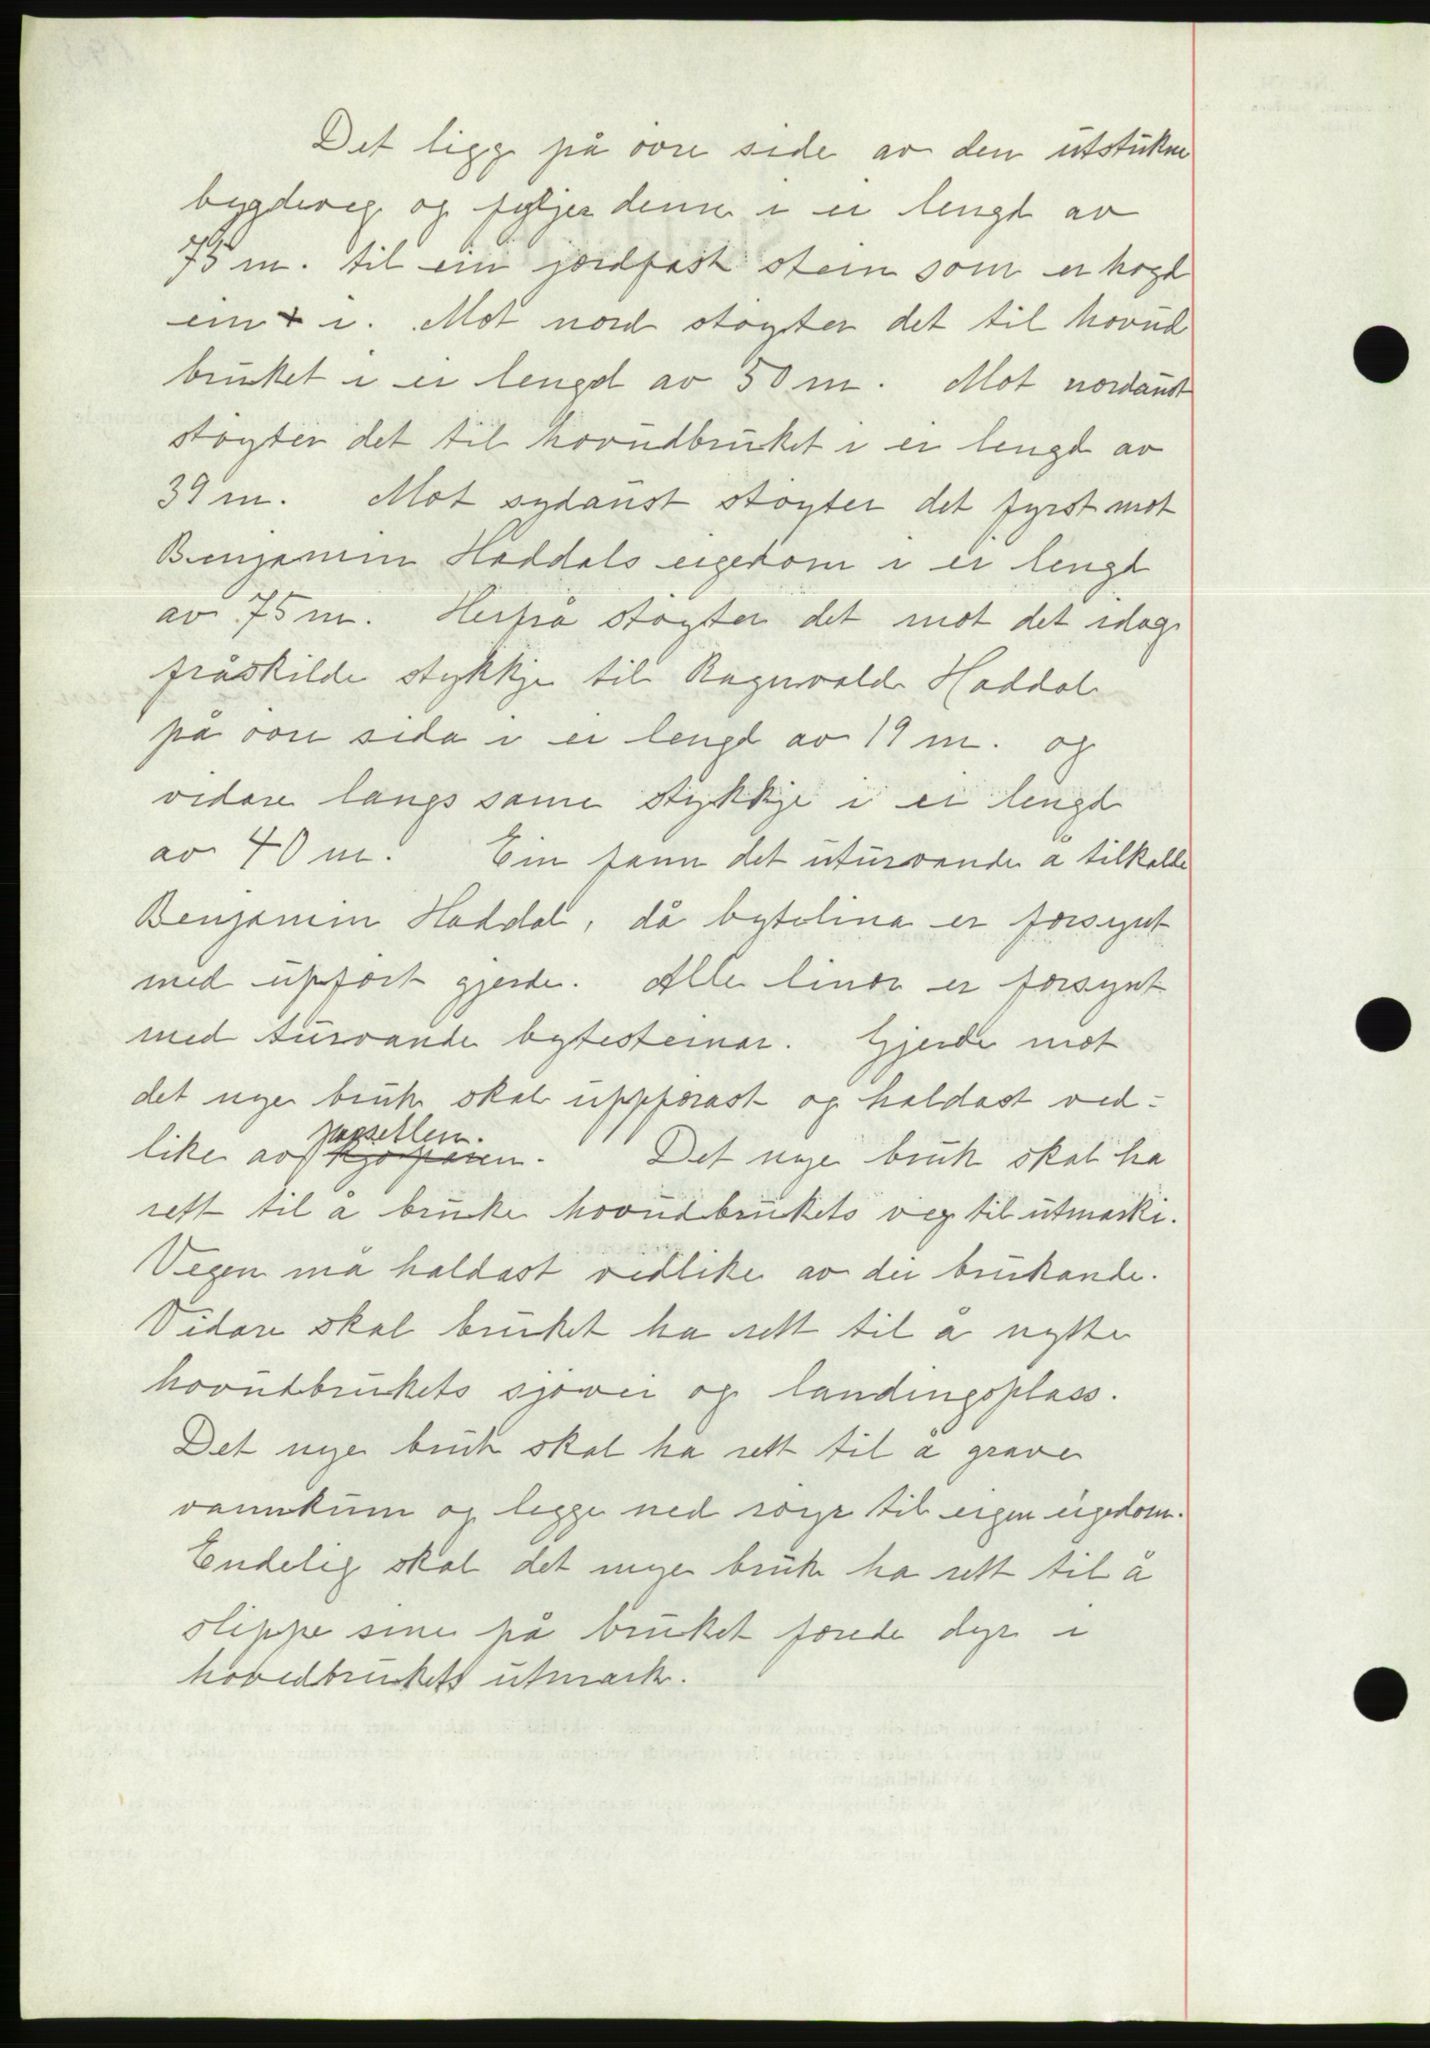 Det ligg på övre side av den utstukne
bygdeveg og fylgjer denne i ei lengd av
75 m. til ein jordfast stein som er hogd
ein + i. Mot nord støyter det til hovud
bruket i ei lengd av 50 m. Mot nordaust
støyter det til hovudbruket i ei lengd av
39 m. Mot sydaust støyter det fyrst mot
Benjamin Haddals eigedom i ei lengd
av 75 m. Herfrå støyter det mot det idag
fråskilde stykkje til Ragnvald Haddal
på övre sida i ei lengd av 19 m. og
vidare langs same stykkje i ei lengd
av 40 m. Ein fann det uturvande å tilkalle
Benjamin Haddal, då bytelina er forsynt
med uppfört gjerde. Alle linor er forsynt
med turvande bytesteinar. Gjerde mot
det nye bruk skal uppförast og haldast ved-
parsellen.
like av kjöparen. Det nye bruk skal ha
rett til å bruke hovudbrukets veg til utmarki.
Vegen må haldast vedlike av dei brukande.
Vidare skal bruket ha rett til å nytte
hovudbrukets sjövei og landingsplass.
Det nye bruk skal ha rett til å grave
vannkum og legge ned röyr til eigen eigedom.
Endelig skal det nye bruk ha rett til å
slippe sine på bruket forede dyr i
hovedbrukets utmark.